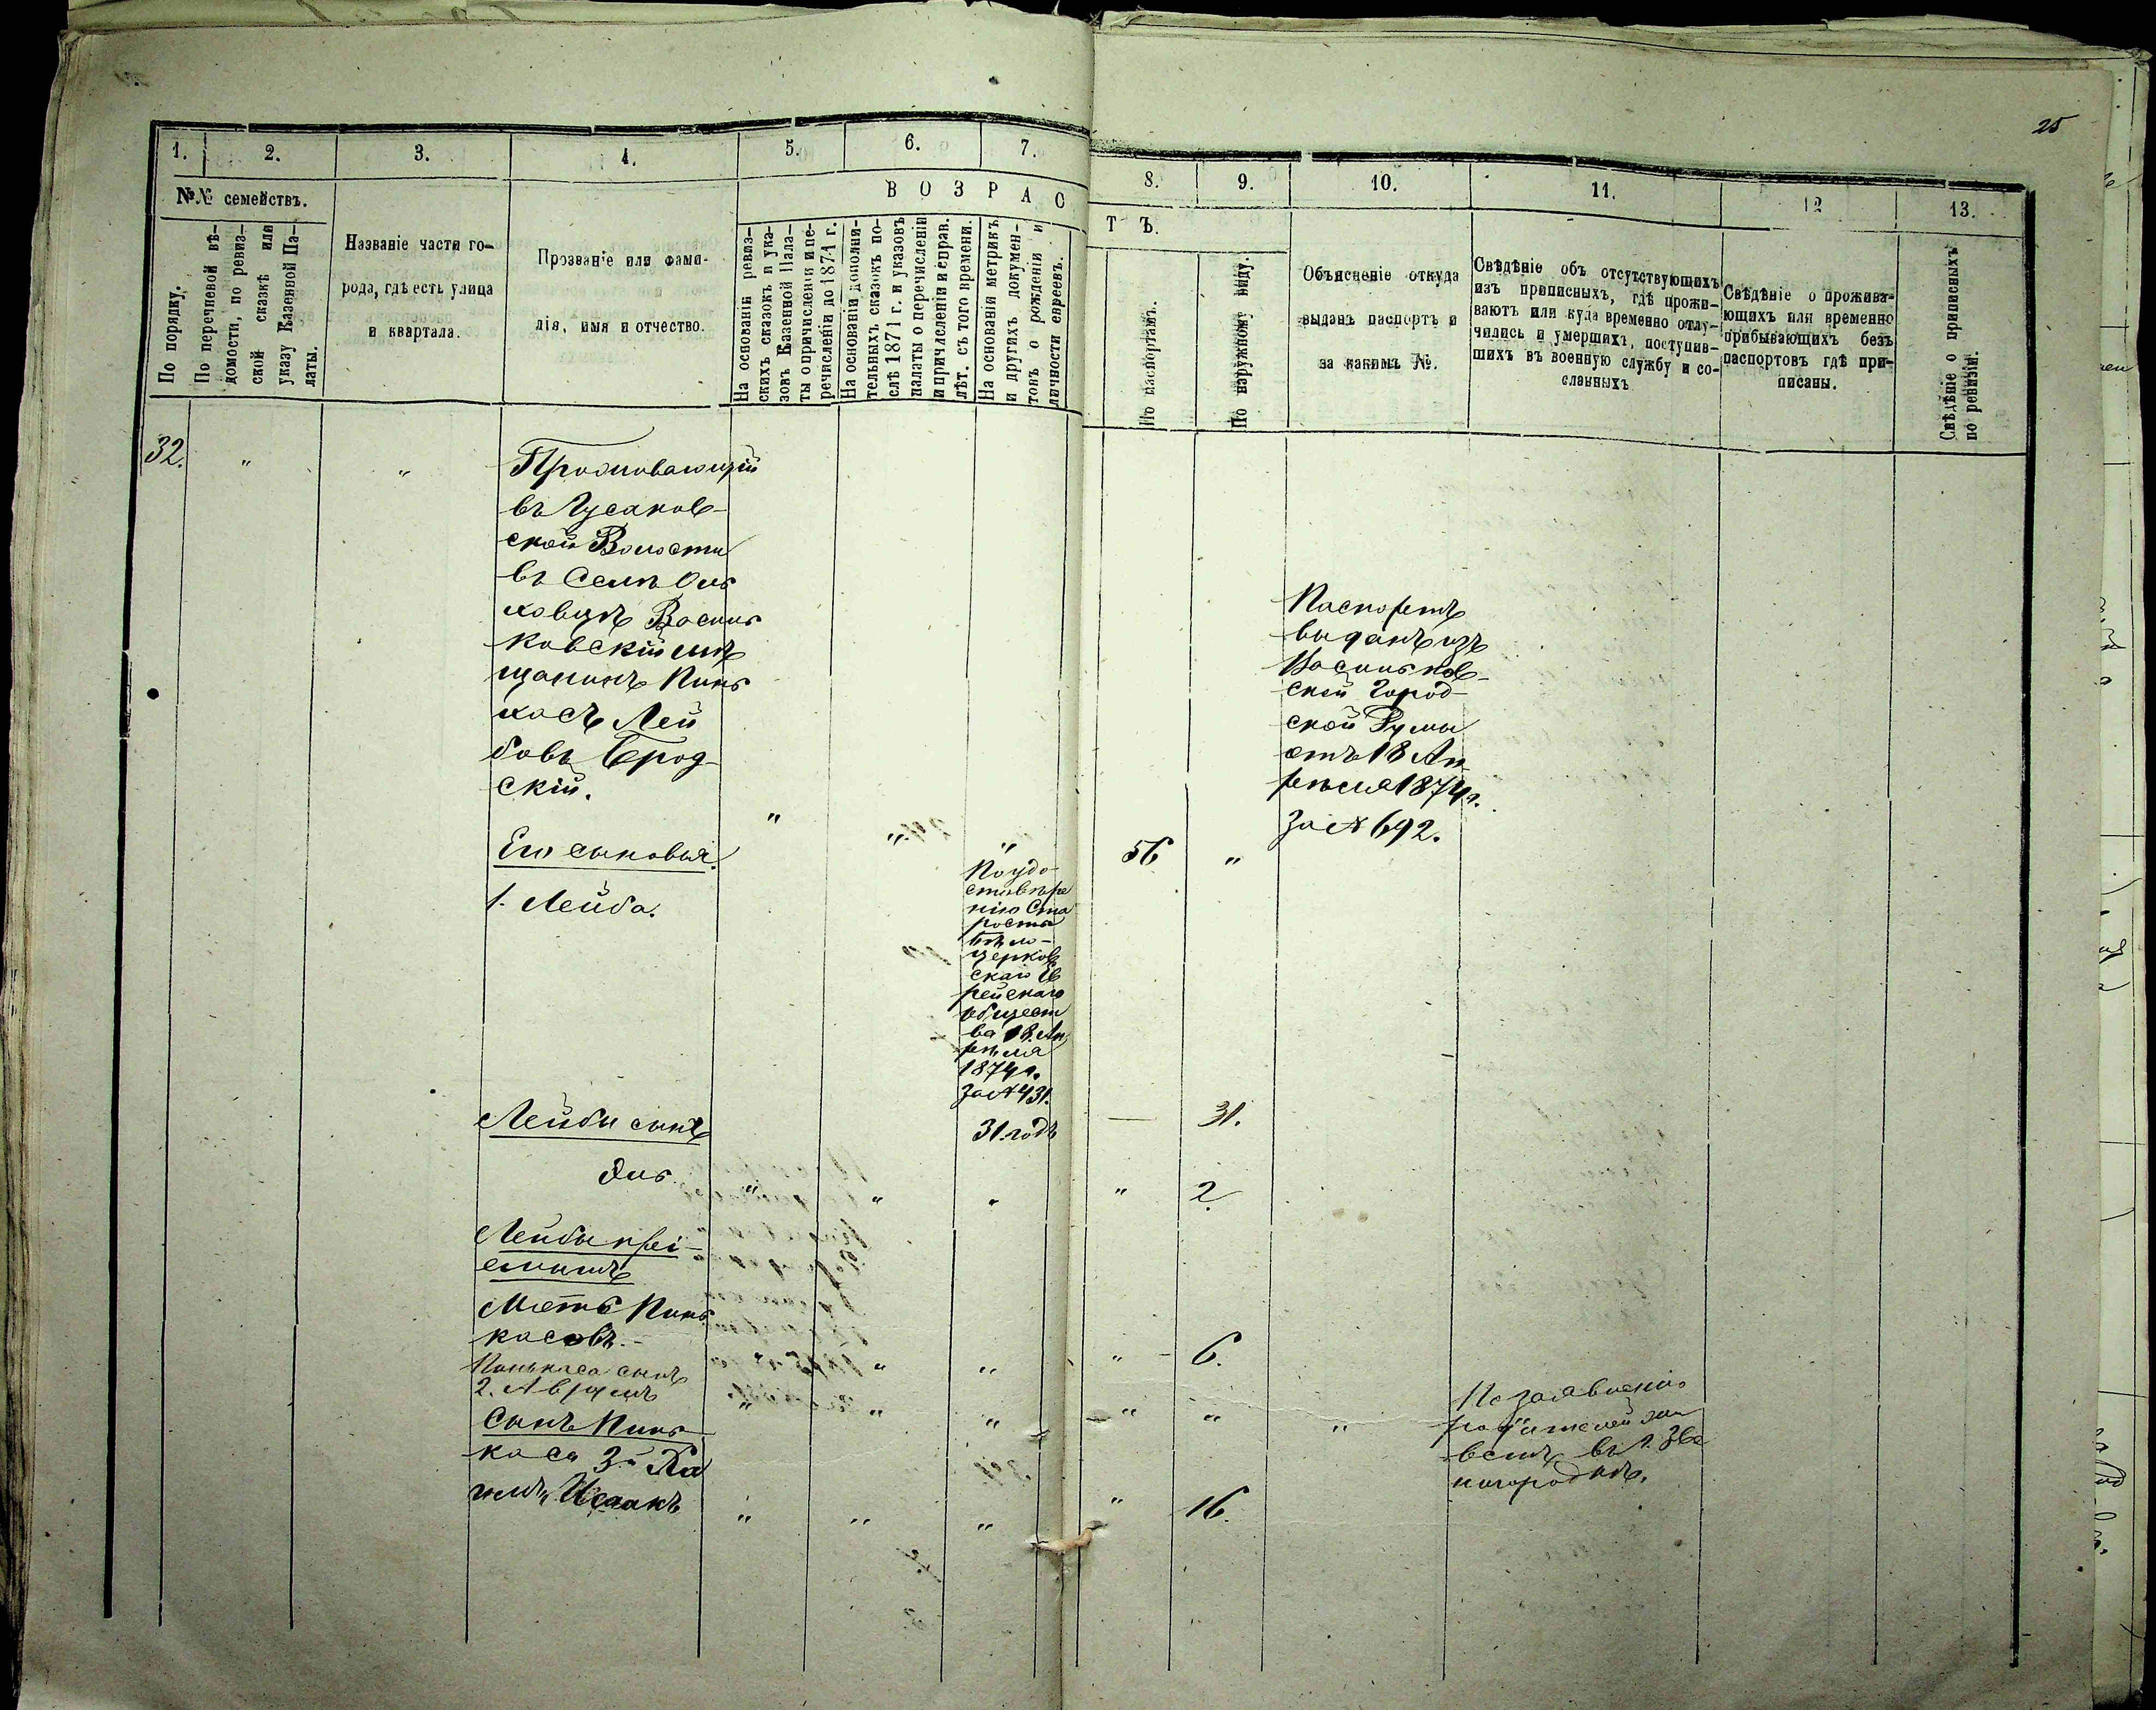 25
1. 2. 3. 4. 5. 6. 7. 8. 9. 10. 11. 12 13.
№№ семействъ.
По порядку.
По перечневой вѣ-
домости, по ревиз-
ской сказкѣ или
указу Казенной Па-
латы.
Названіе части го-
рода, гдѣ есть улица
и квартала.
Прозваніе или фами-
лія, имя и отчество.
ВОЗРАСТЪ.
На основаніи ревиз-
скихъ сказокъ и ука-
зовъ Казенной Пала-
ты о причисленіи и пе-
речисленіи до 1871 г.
На основаніи дополни-
тельныхъ сказокъ по-
слѣ 1871 г. и указовъ
палаты о перечисленіи
и причисленіи и справ.
лѣт. съ того времени.
На основаніи метрикъ
и другихъ докумен-
товъ о рожденіи и
личности евреевъ.
По паспортамъ.
По наружному виду.
Объясненіе откуда
выданъ паспортъ и
за какимъ №.
Свѣдѣніе объ отсутствующихъ
изъ приписныхъ, гдѣ прожи-
ваютъ или куда временно отлу-
чились и умершихъ, поступив-
шихъ въ военную службу и со-
сланныхъ
Свѣдѣніе о прожива-
ющихъ или временно
прибывающихъ безъ
паспортовъ гдѣ при-
писаны.
Свѣдѣніе о приписныхъ
по ревизіи.
32. " "
Проживающій
въ Гусаков-
ской Волости
въ Селѣ Оль
ховцѣ Василь
ковскій мѣ
щанинъ Пинь
касъ Лей
бовъ Брод-
скій.
" " " 56 "
Паспортъ
выданъ изъ
Васильков-
ской Город-
ской Думы
отъ 18 Ап
рѣля 1874 г.
За № 692.
Его сыновья
1. Лейба.
По удо-
стовѣре
нію Ста
росты
Бѣло-
церков
скаго Ев
рейскаго
общест
ва 18 Ап
рѣля
1874 г.
За № 431.
31 годъ — 31.
Лейбы сынъ
Эль " " " " 2.
Лейбы прі-
емышъ
Мотъ Пинь
касовъ. " " " 6.
Пинькаса сынъ
2. Аврумъ " " " " " "
По заявленію
родителей
въ г. Зве
нигородкѣ.
Сынъ Пинь
каса 3й Ха
имъ Исаакъ " " " " 16.